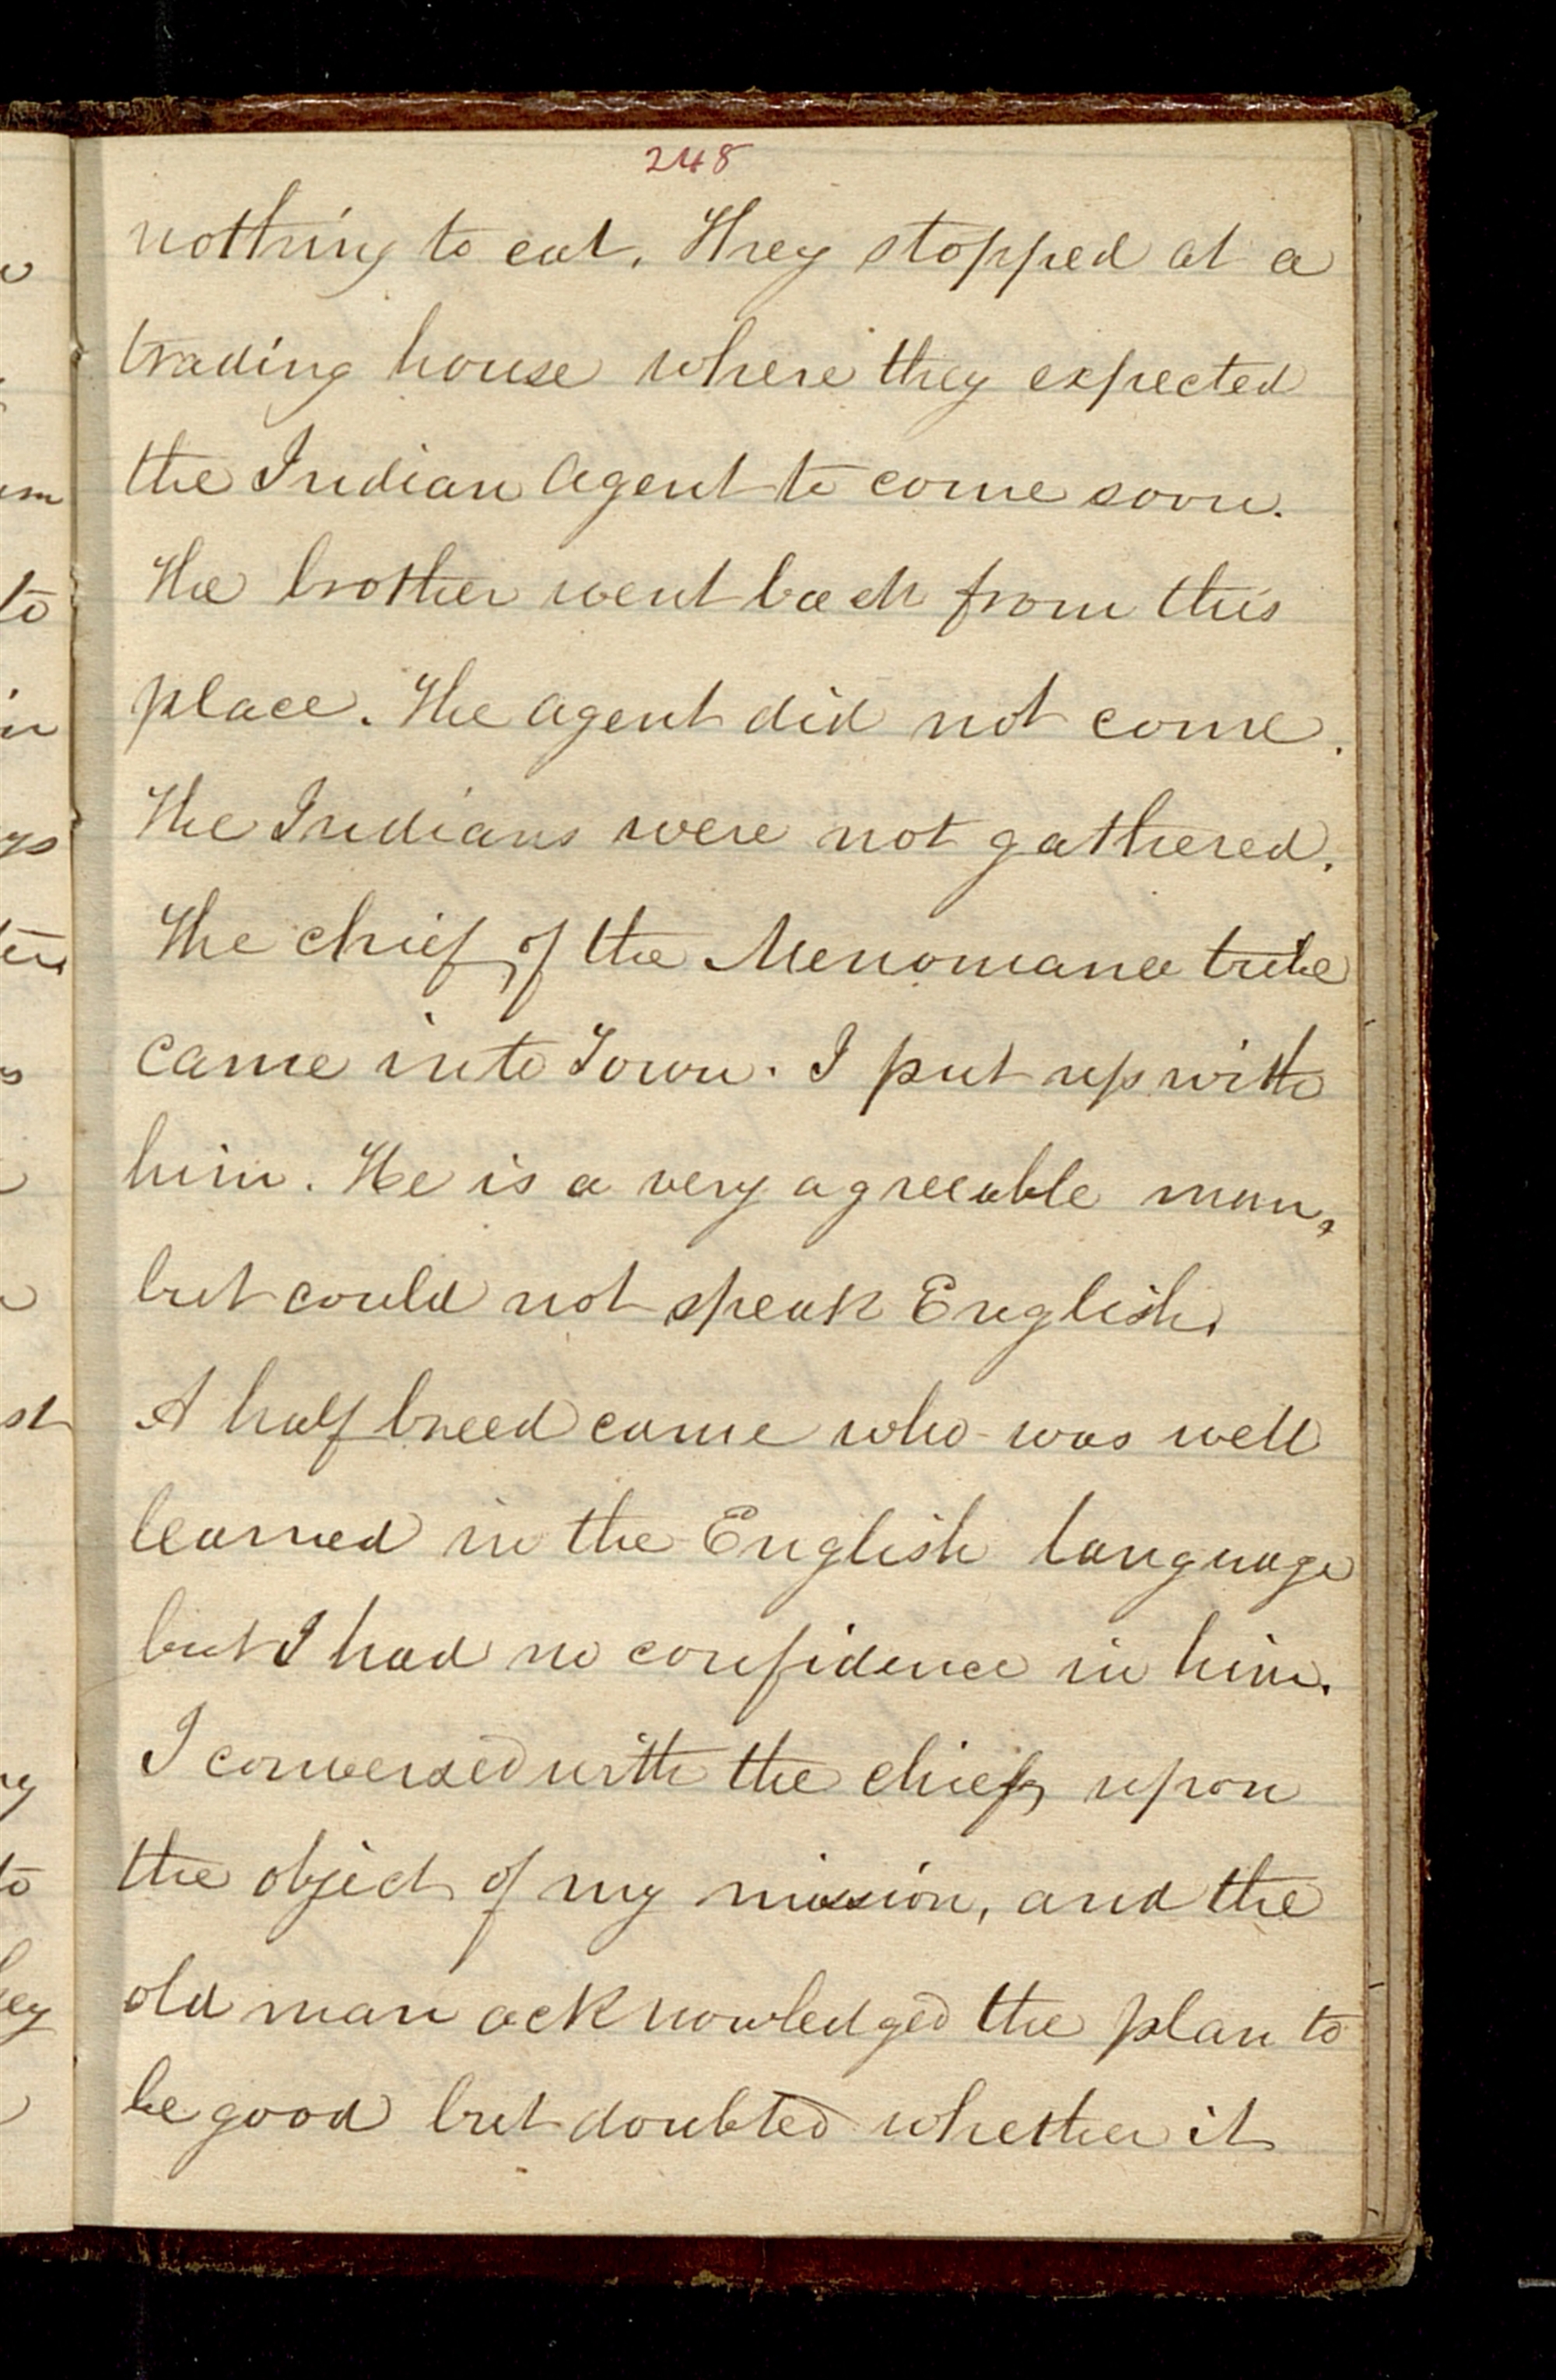 248
nothing to eat. They stopped at a
trading house where they expected
the Indian Agent to come soon.
The brother went back from this
place. The Agent did not come.
The Indians were not gathered.
The chief of the Menomanee tribe
came into Town. I put up with
him. He is a very agreeable man,
but could not speak English.
A half breed came who was well
learned in the English language
but I had no confidence in him.
I conversed with the chief, upon
the object of my mission, and the
old man acknowledged the plan to
be good but doubted whether it